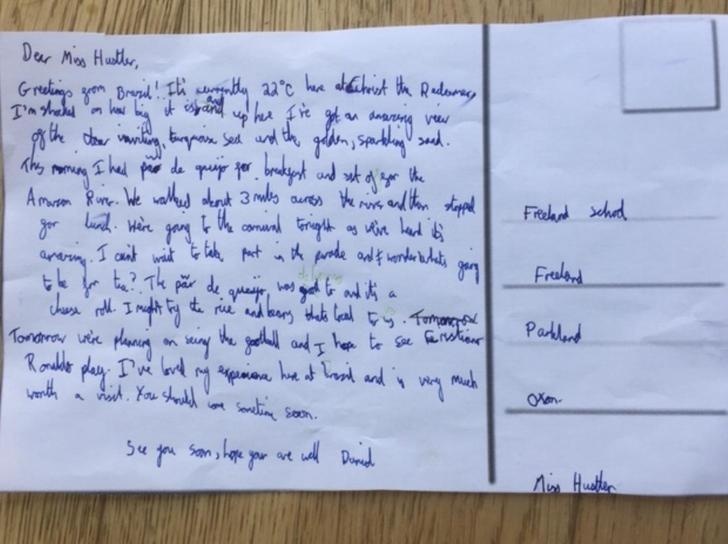 Dear Miss Hustler,
Greetings from Brazil! It's currently 22°C here at Christ the Redeemer,
I'm shocked on how big it is and up here I've got an amazing view
of the clear inviting, turquoise sea and the golden, sparkling sand.
This morning I had pão de queijo for breakfast and set of for the
Amazon River. We walked about 3 miles across the river and then stopped
for lunch. We're going to the carnival tonight as we've heard it's
amazing. I can't wait to take part in the parade and I wonder whats going
to be for tea? The pão de queijo was delicious to and it's a
cheese roll. I might try the rice and beans thats local to us. Tomorrow
Tomorrow we're planning on seing the football and I hope to see
Ronaldo play. I've loved my experience here at Brazil and is very much
worth a visit. You should come sometime soon.
See you soon, hope your are well Daniel
Freeland School
Freeland
Parkland
Oxon.
Miss Hustler